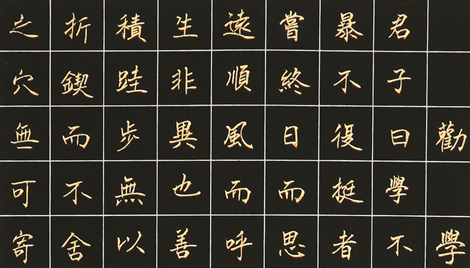 勸學
君子曰學不
暴不復挺者
嘗終日而思
遠順風而呼
生非異也善
積跬步無以
折鍥而不舍
之穴無可寄